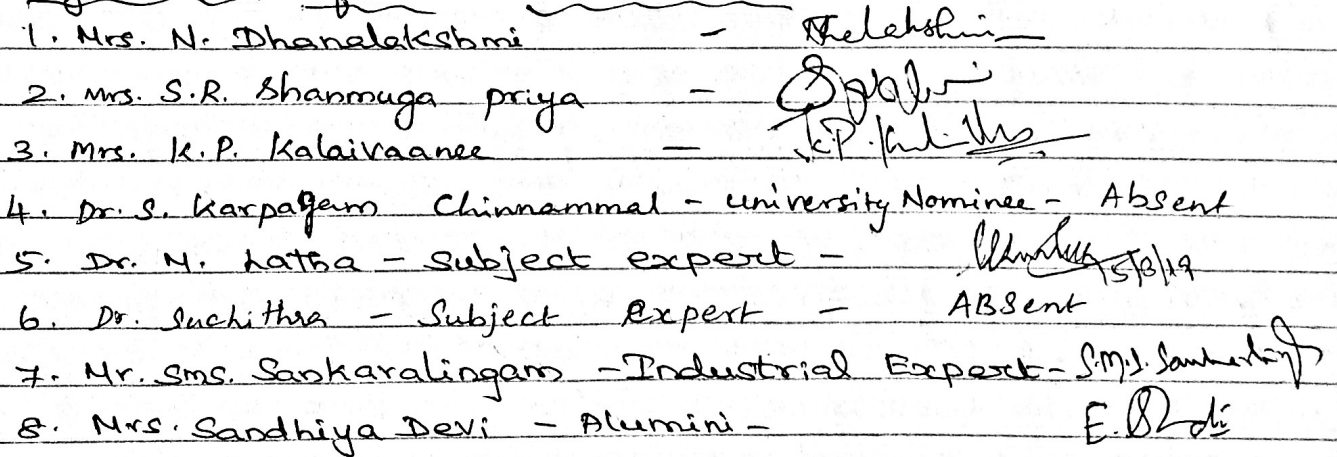 1. Mrs. N. Dhanalakshmi -
2. Mrs. S.R. Shanmuga priya -
3. Mrs. K.P. Kalaivaanee -
4. Dr. S. Karpagam Chinnammal - University Nominee - Absent
5. Dr. M. Latha - Subject expert - 15/3/19
6. Dr. Suchithra - Subject Expert - ABSent
7. Mr. SMS. Sankaralingam - Industrial Expert - S.M.S.
8. Mrs. Sandhiya Devi - Alumini - E.